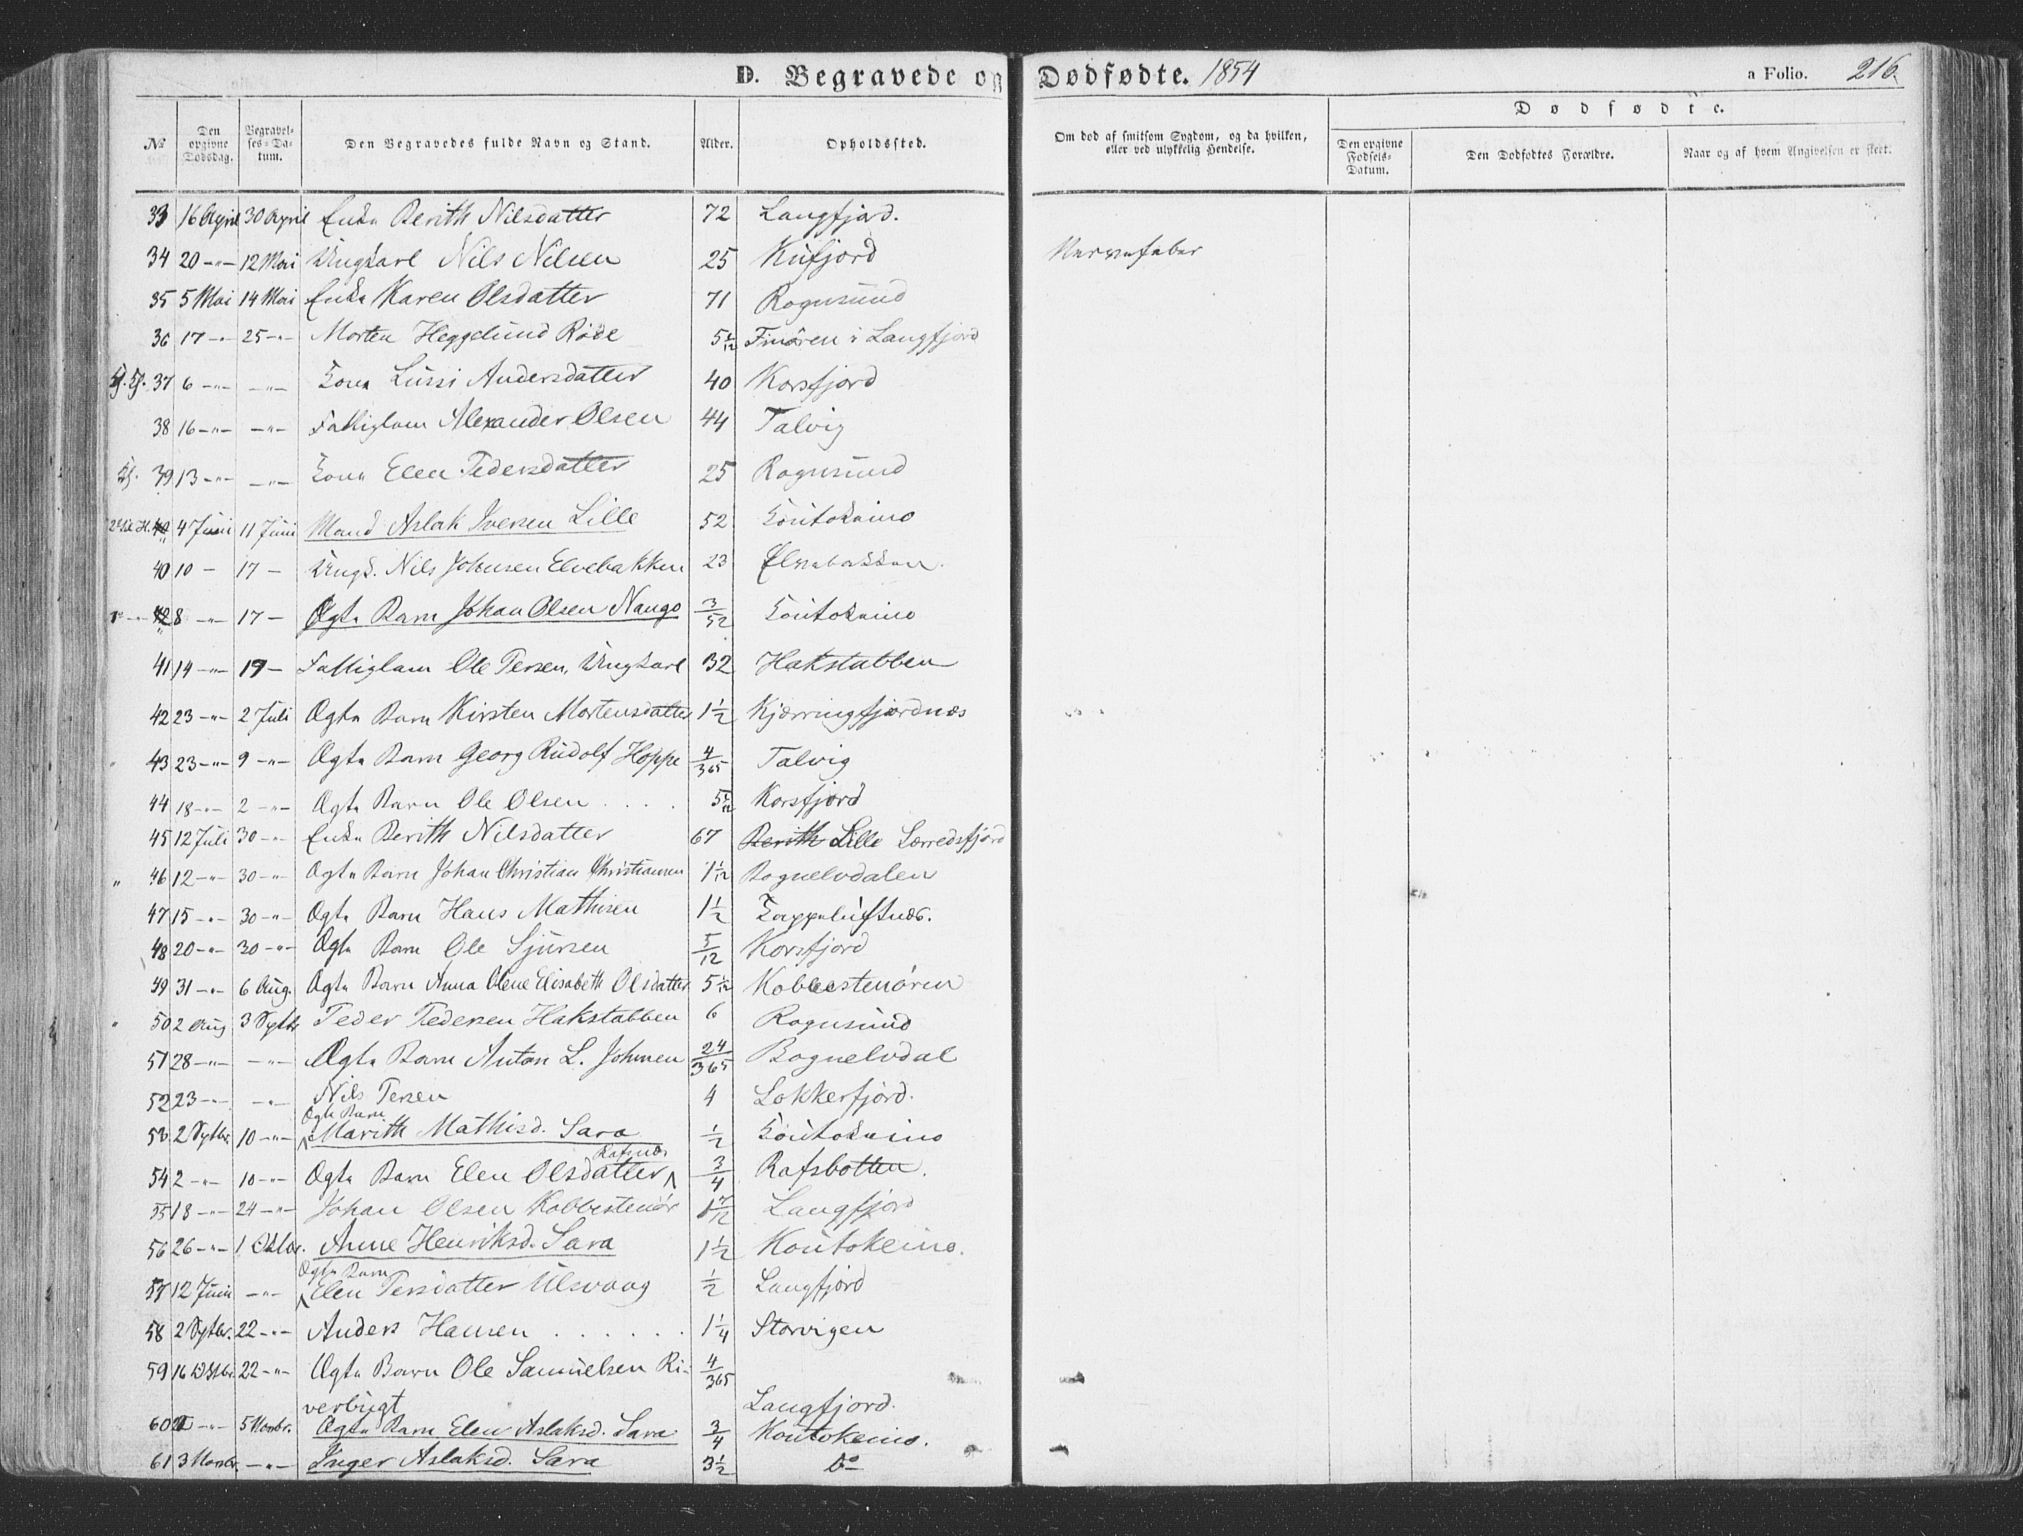 D. Begravede og Dødfødte. 1854 a Folio. 216.
Dødfødte.
No Den opgivne Dødsdag. Begravelses-Datum. Den Begravedes fulde Navn og Stand. Alder. Opholdssted. Om død af smitsom Sygdom, og da hvilken, eller ved ulykkelig Hendelse. Den opgivne Fødsels-Datum. Den Dødfødtes Forældre. Naar og af hvem Angivelsen er skeet.
33 16 April 30 April Enke Berith Nilsdatter 72 Langfjord.
34 20 -"- 12 Mai Ungkarl Nils Nilsen 25 Kufjord Nervefeber
35 5 Mai 14 Mai Enke Karen Olsdatter 71 Rognsund
36 17 -"- 25 -"- Morten Heggelund Røde 5 1/12 Finøren i Langfjord
37 6 -"- -"- Kona Lussi Andersdatter 40 Korsfjord
38 16 -"- -"- Fattiglem Alexander Olsen 44 Talvig
39 13 -"- -"- Kona Elen Pedersdatter 25 Rognsund
4 Juni 11 Juni Mand Aslak Iversen Lille 52 Koutokeino
40 10 - 17 - Ungk. Nils Johnsen Elvebakken 23 Elvebakken.
8 -"- 17 - Ægte Barn Johan Olsen Nango 3/52 Koutokeino
41 14 -"- 19 - Fattiglem Ole Persen, Ungkarl 32 Hakstabben
42 23 -"- 2 Juli Ægte Barn Kirsten Mortensdatter 1 1/2 Kjærringfjordnæs
43 23 -"- 9 -"- Ægte Barn Georg Rudolf Hoppe 4/365 Talvig
44 18 -"- 2 -"- Ægte Barn Ole Olsen . . . . Korsfjord
45 12 Juli 30 -"- Enke Berith Nilsdatter 67 Berith Lille Lerredsfjord
46 12 -"- 30 -"- Ægte Barn Johan Christian Christiansen 1 1/12 Bognelvdalen
47 15 -"- 30 -"- Ægte Barn Hans Mathisen 1 1/2 Kappeluftnæs.
48 20 -"- 30 -"- Ægte Barn Ole Sjursen 5/12 Korsfjord
49 31 -"- 6 Aug. Ægte Barn Anna Olene Elisabeth Olsdatter 5 1/12 Kobbestenøren
50 2 Aug 3 Septb Peder Pedersen Hakstabben 6 Rognsund
51 28 -"- -"- Ægte Barn Anton L. Johnsen 24/365 Bognelvdal
52 23 -"- -"- Nils Persen 4 Lokkerfjord.
53 2 Septbr. 10 -"- Ægte Barn Marith Mathisd. Sara 1/2 Koutokeino
54 2 -"- 10 -"- Ægte Barn Elen Olsdatter Rafsnæs 3/4 Rafsbotten.
55 18 -"- 24 -"- Johan Olsen Kobbestenør Langfjord
56 26 -"- 1 Oktbr. Anne Henriksd. Sara 1 1/2 Koutokeino.
57 12 Juni -"- Ægte Barn Elen Persdatter Ulsvaag 1/2 Langfjord
58 2 Septbr. 22 -"- Anders Hansen . . . . . . 1 1/4 Storvigen
59 16 Oktbr 22 -"- Ægte Barn Ole Samuelsen Ri- 4/365
verbugt Langfjord.
60 -"- 5 Novbr. Ægte Barn Elen Aslaksd. Sara 3/4 Koutokeino.
61 3 Novbr. -"- Inger Aslaksd. Sara 3 1/2 Do